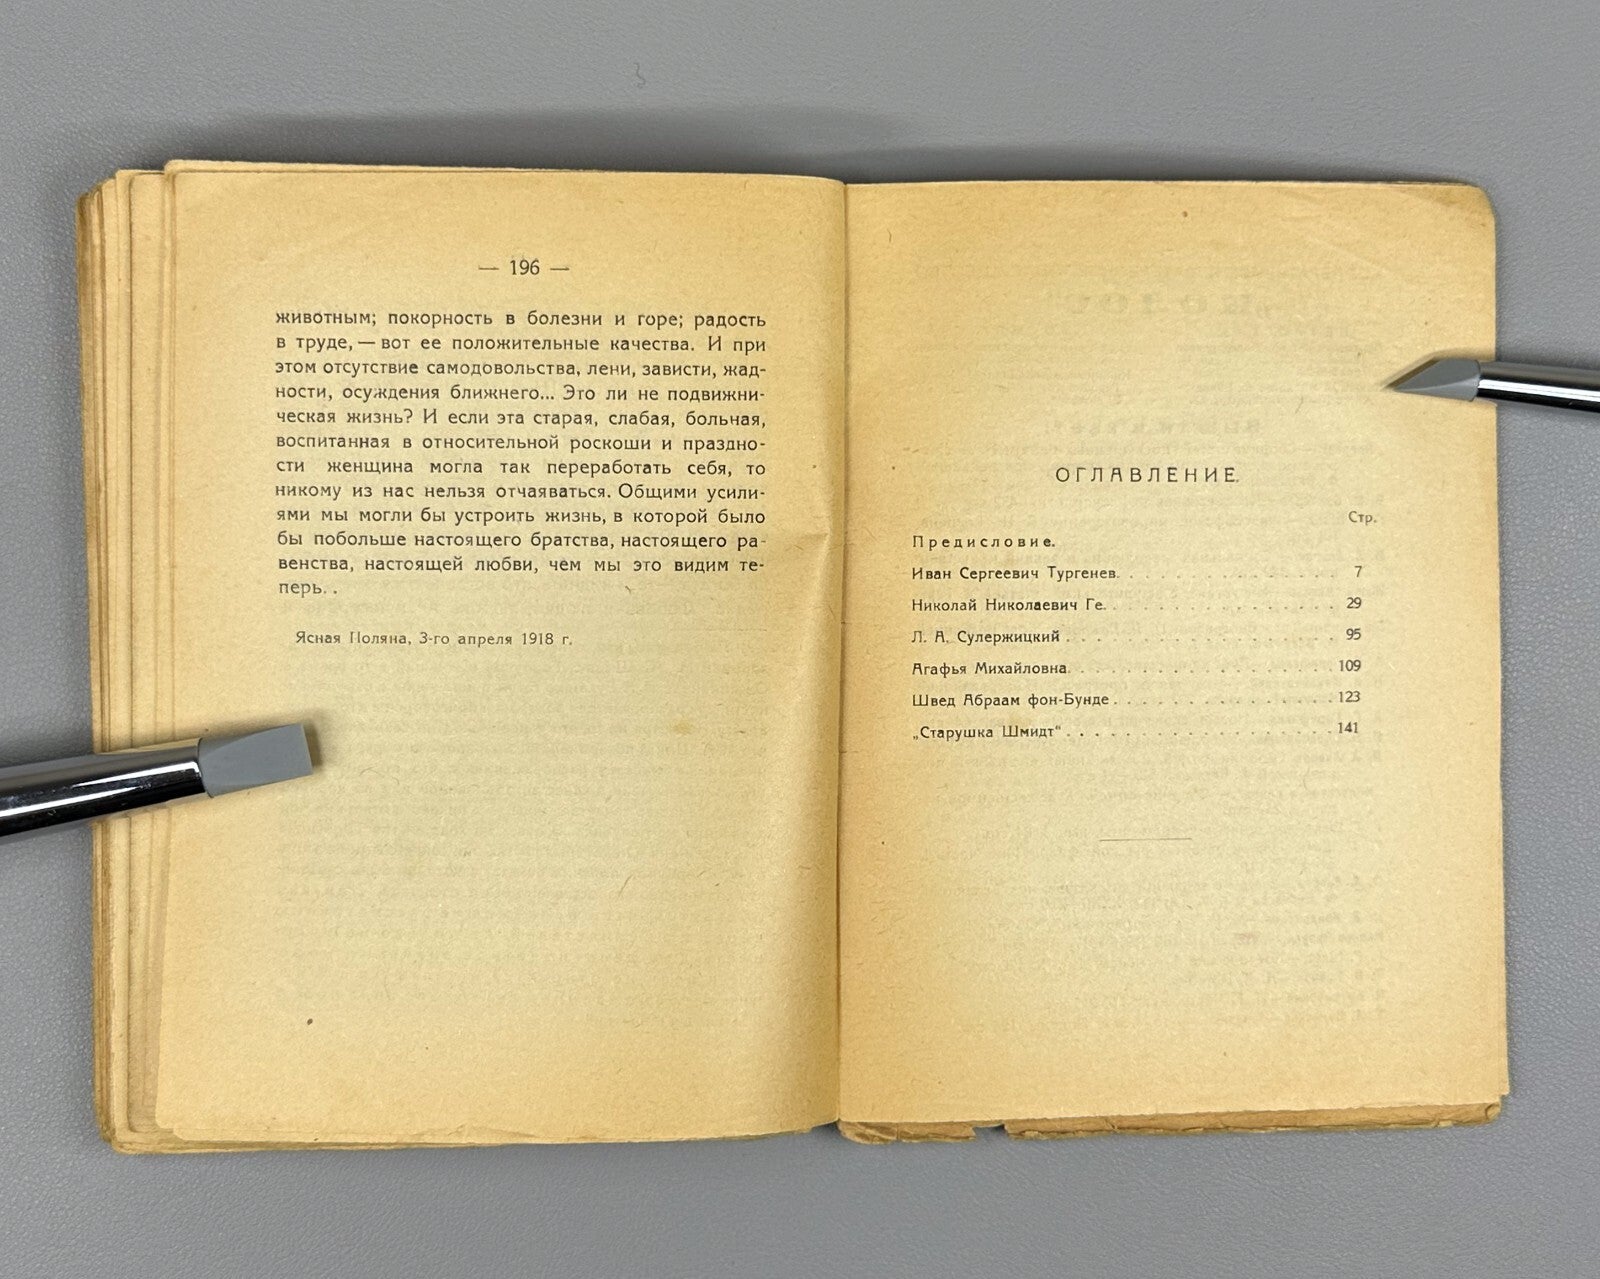 — 196 —
животным; покорность в болезни и горе; радость
в труде, — вот ее положительные качества. И при
этом отсутствие самодовольства, лени, зависти, жад-
ности, осуждения ближнего... Это ли не подвижни-
ческая жизнь? И если эта старая, слабая, больная,
воспитанная в относительной роскоши и праздно-
сти женщина могла так переработать себя, то
никому из нас нельзя отчаяваться. Общими усили-
ями мы могли бы устроить жизнь, в которой было
бы побольше настоящего братства, настоящего ра-
венства, настоящей любви, чем мы это видим те-
перь. .
Ясная Поляна, 3-го апреля 1918 г.
ОГЛАВЛЕНИЕ.
Стр.
Предисловие.
Иван Сергеевич Тургенев. . . . . . . . . . . . . . . . 7
Николай Николаевич Ге. . . . . . . . . . . . . . . . 29
Л. А. Сулержицкий . . . . . . . . . . . . . . . . . . 95
Агафья Михайловна. . . . . . . . . . . . . . . . . . 109
Швед Абраам фон-Бунде . . . . . . . . . . . . . . . 123
„Старушка Шмидт“ . . . . . . . . . . . . . . . . . . 141